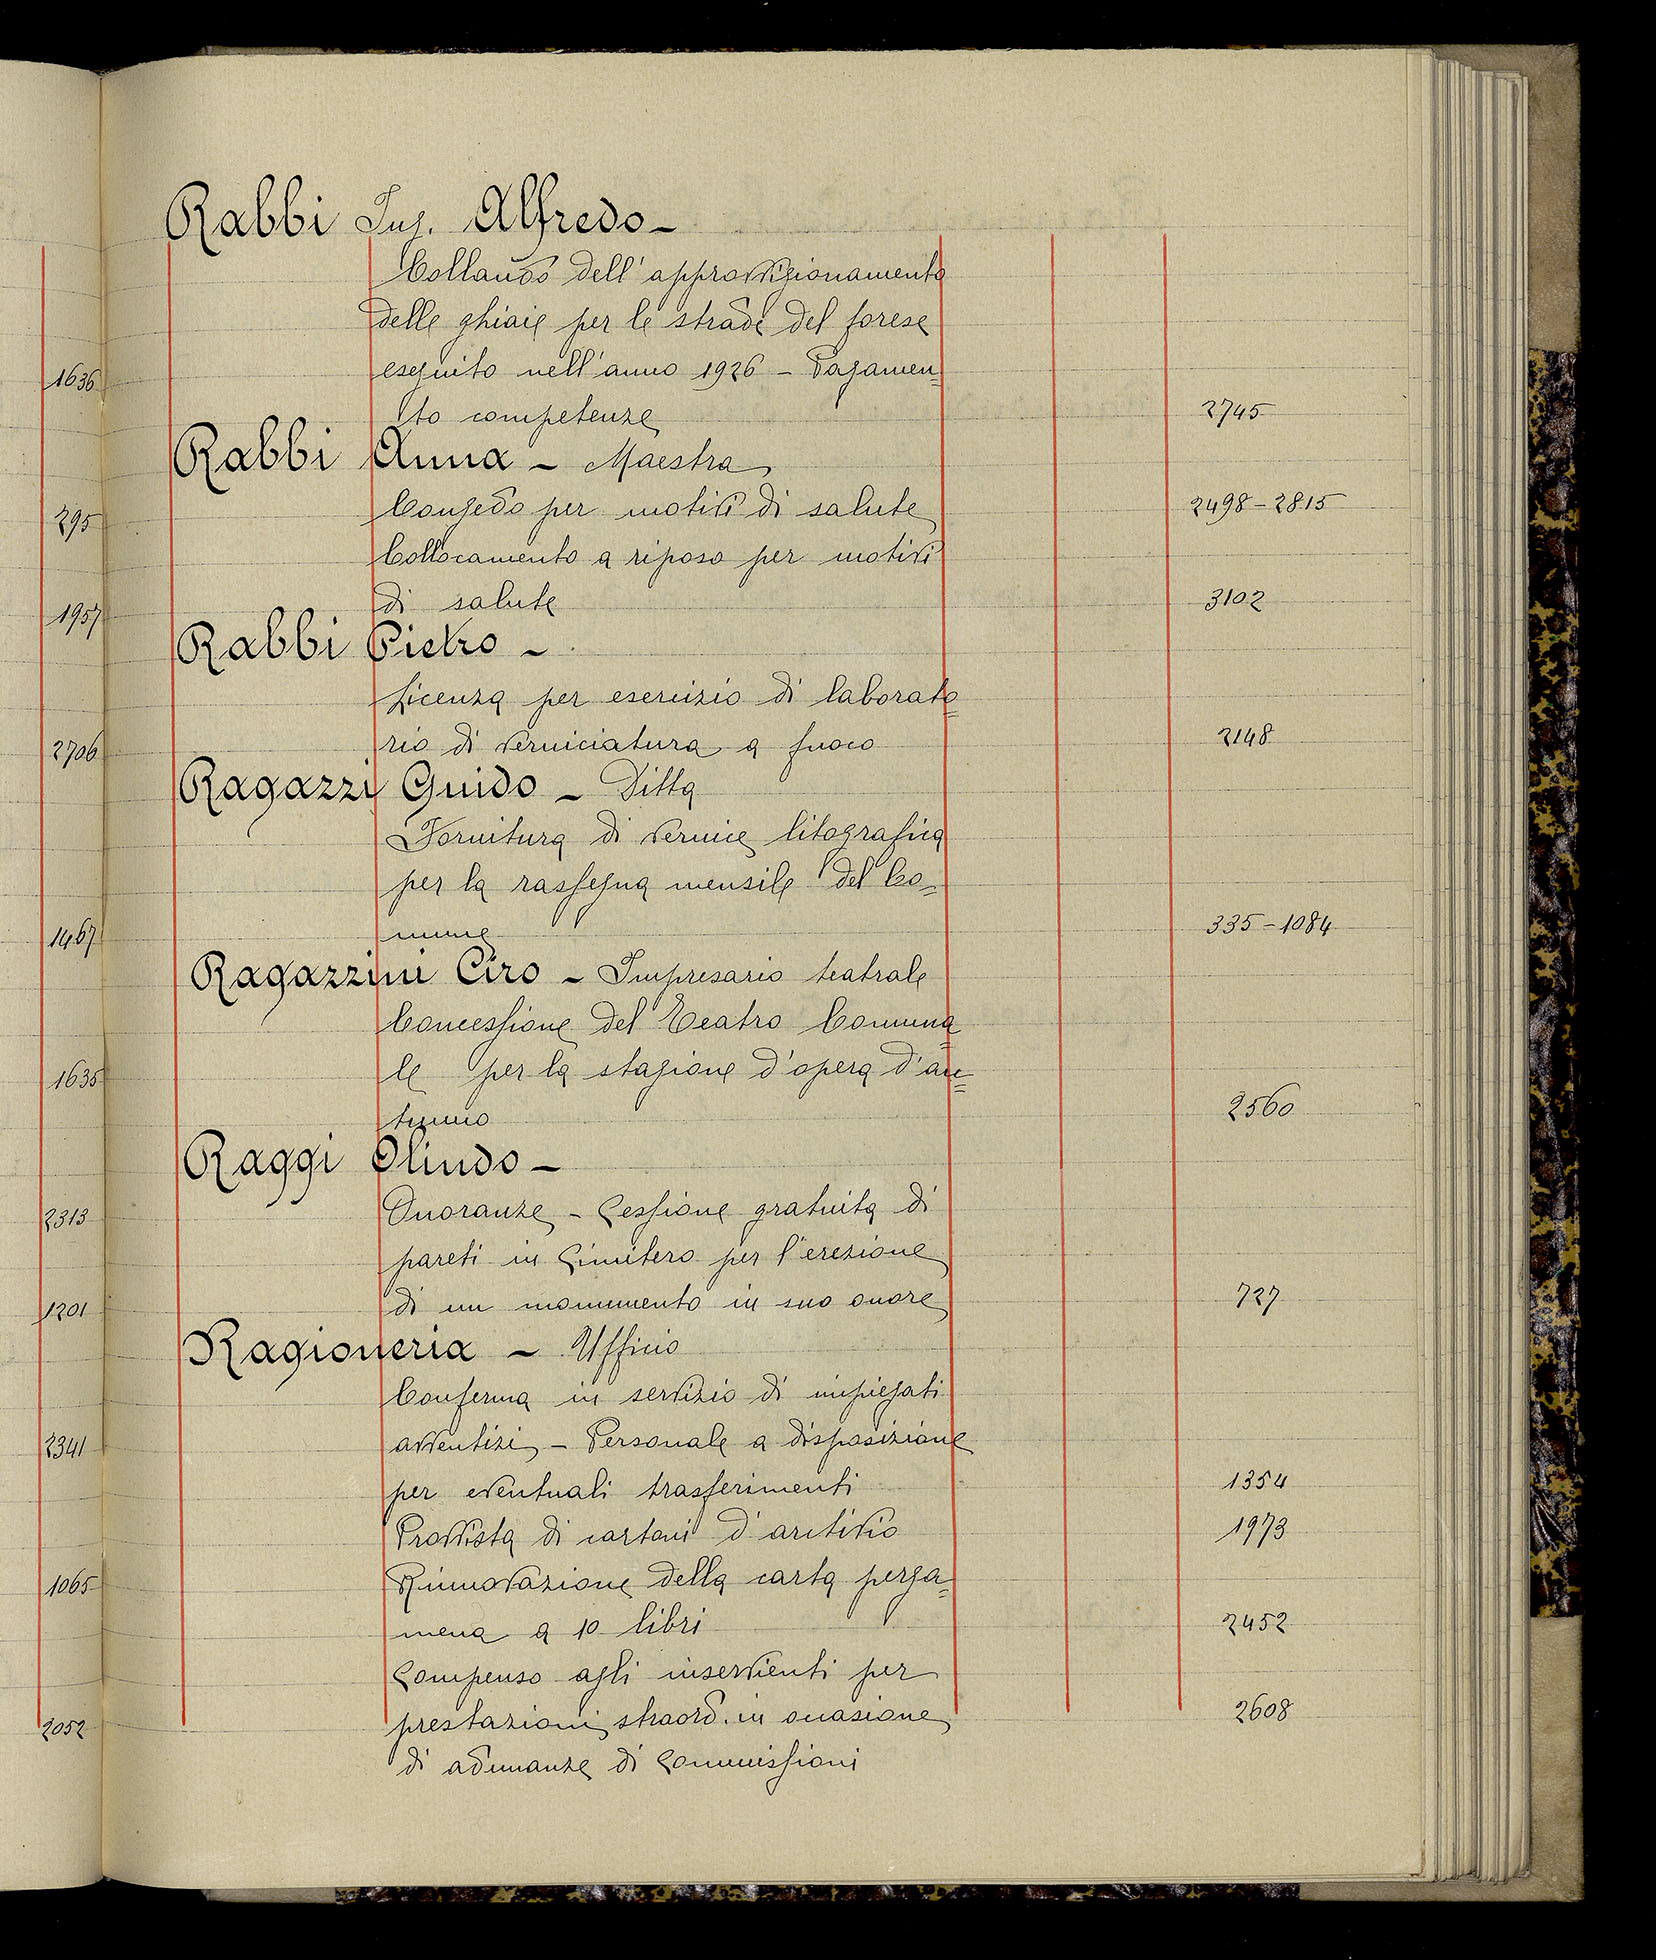 Rabbi Ing. Alfredo –
Collaudo dell'approvvigionamento
delle ghiaie per le strade del forese
1636 eseguito nell'anno 1926 – Pagamen=
to competenze 2745
Rabbi Anna – Maestra
295 Congedo per motivi di salute 2498 – 2815
Collocamento a riposo per motivi
1957 di salute 3102
Rabbi Pietro –
Licenza per esercizio di laborato=
2706 rio di verniciatura a fuoco 2148
Ragazzi Guido – Ditta
Fornitura di vernice litografica
per la rassegna mensile del Co=
1467 mune 335 – 1084
Ragazzini Ciro – Impresario teatrale
Concessione del Teatro Comuna=
1635 le per la stagione d'opera d'au=
tunno 2560
Raggi Olindo –
2313 Onoranze – Cessione gratuita di
pareti in Cimitero per l'erezione
1201 di un monumento in suo onore 727
Ragioneria – Ufficio
Conferma in servizio di impiegati
2341 avventizi – Personale a disposizione
per eventuali trasferimenti 1354
Provvista di cartoni d'archivio 1973
1065 Rinnovazione della carta perga=
mena a 10 libri 2452
Compenso agli inservienti per
2052 prestazioni straord. in occasione 2608
di adunanze di Commissioni